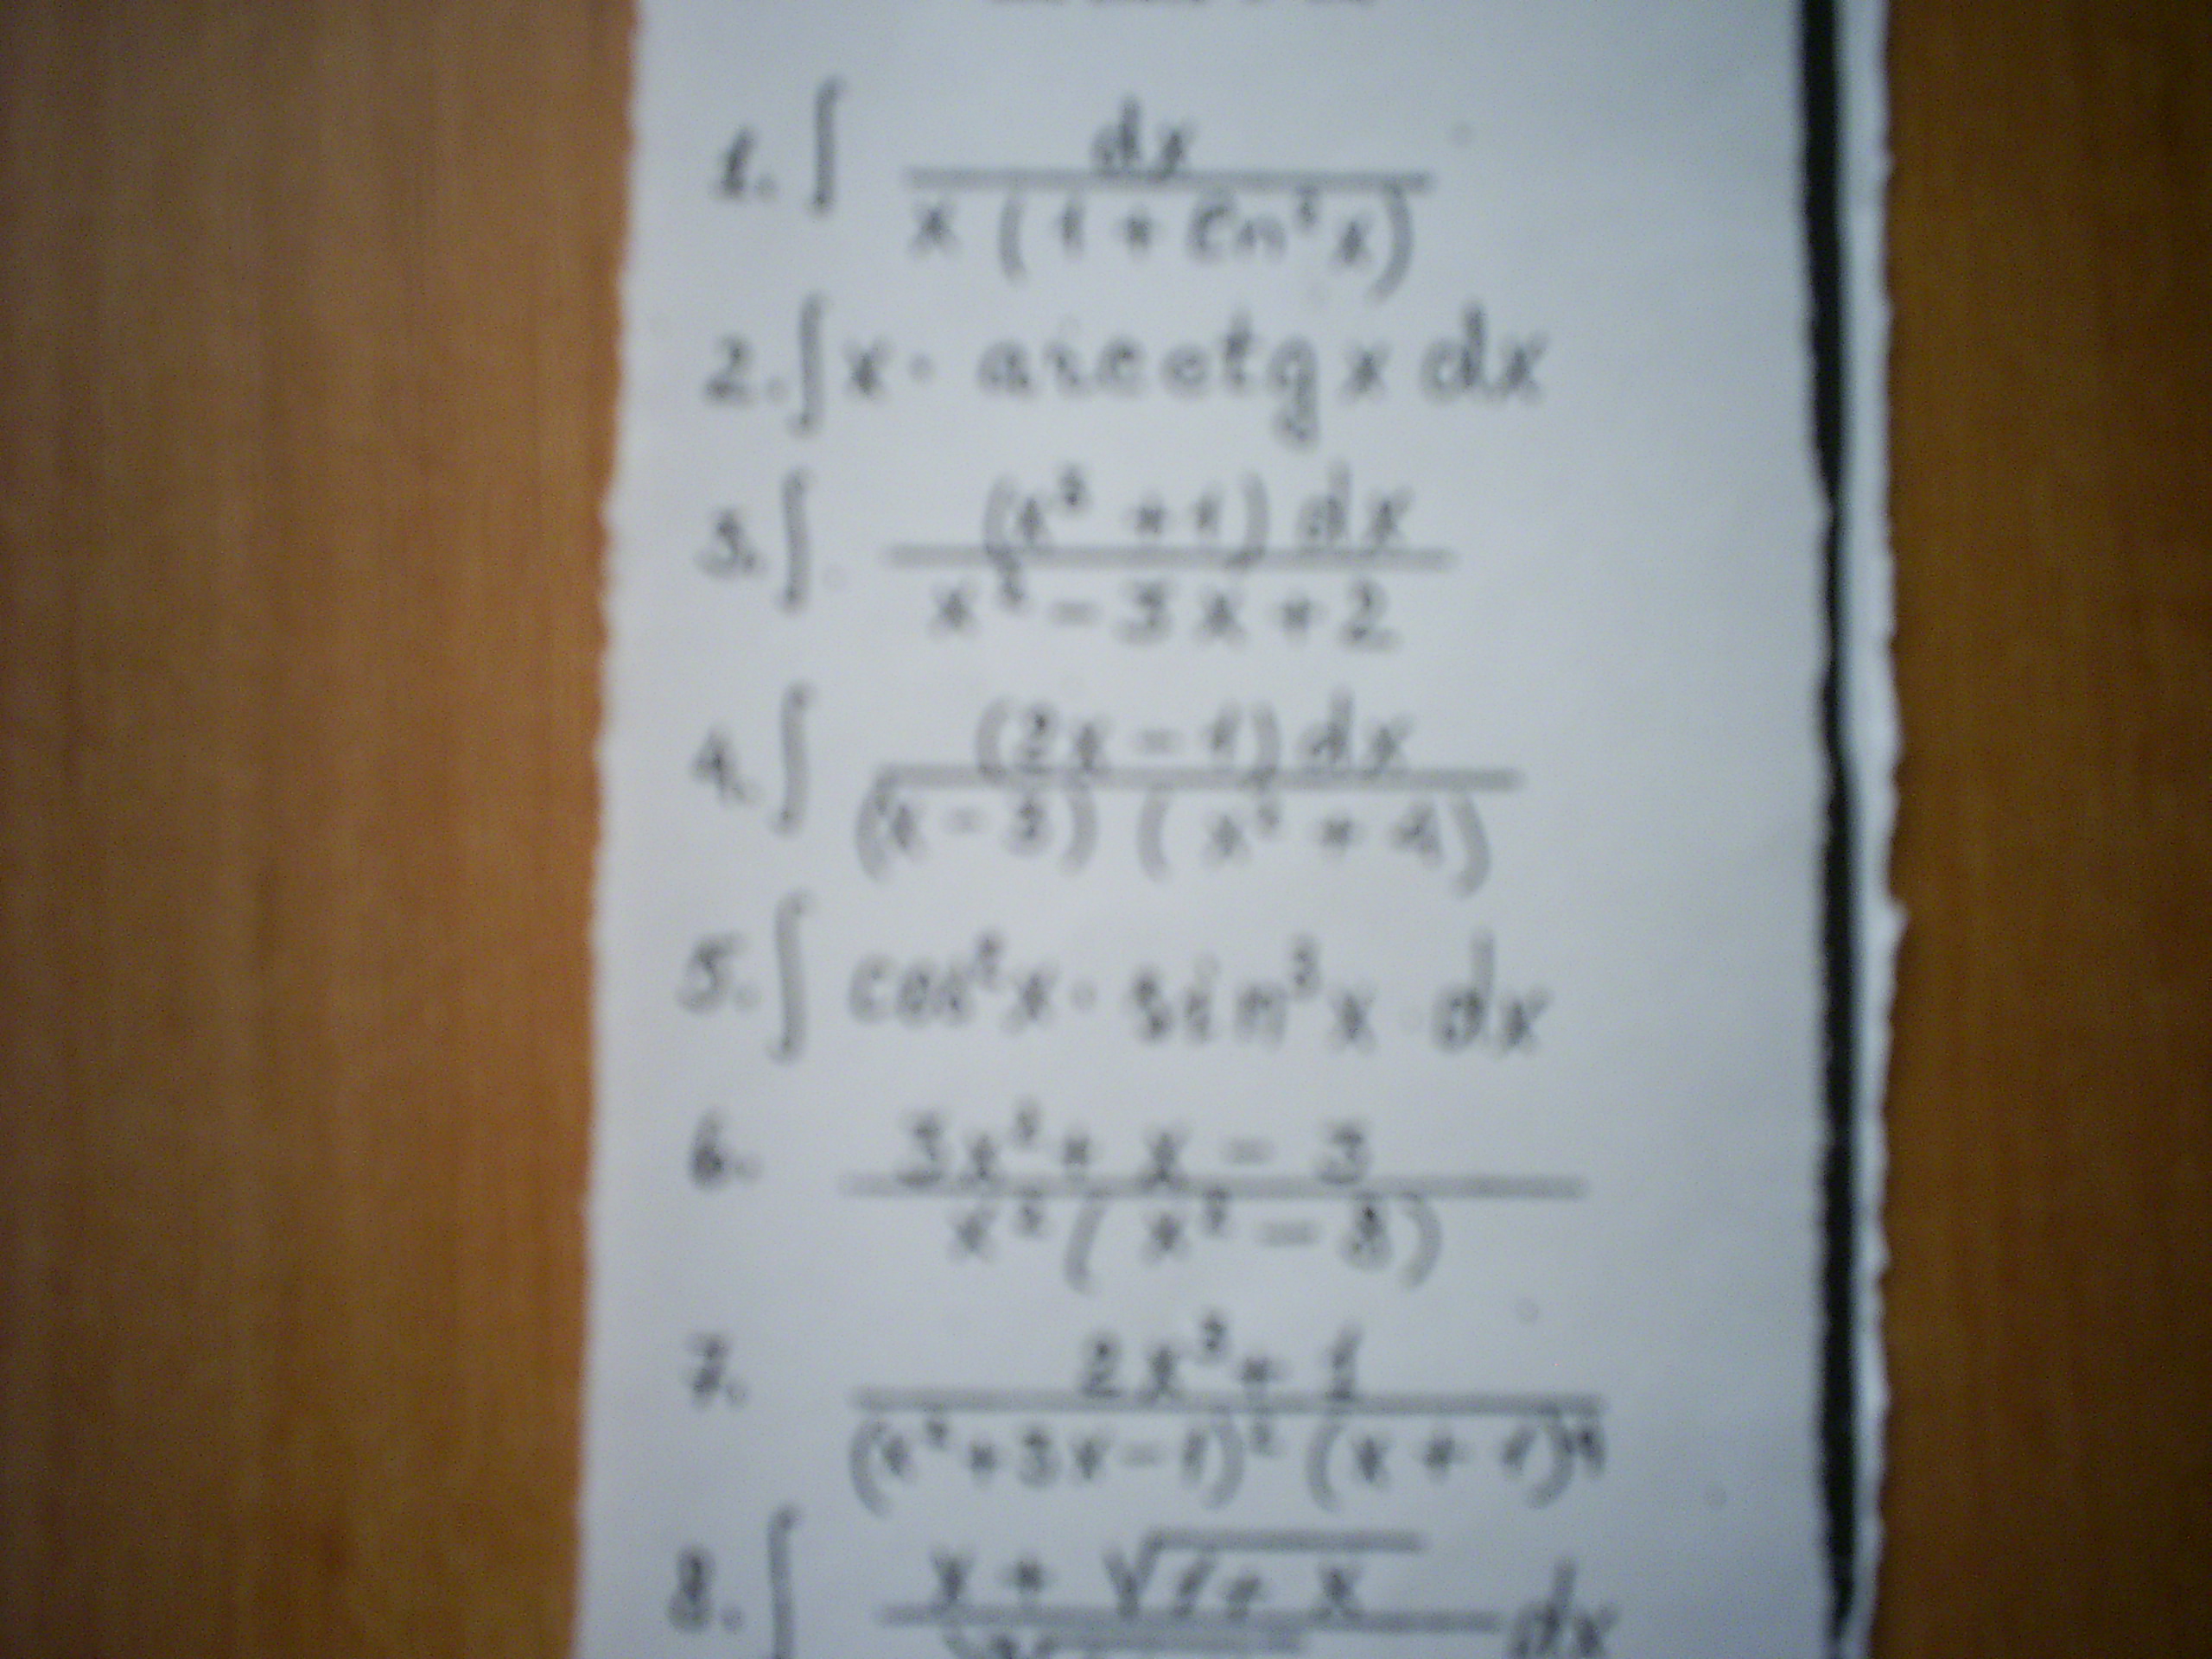 1. ∫ dx / x (1 + ln²x)
2. ∫ x · arcctg x dx
3. ∫ (x³ + 1) dx / x² - 3x + 2
4. ∫ (2x - 1) dx / (x - 3) (x² + 4)
5. ∫ cos²x · sin³x dx
6. 3x² + x - 3 / x² (x² - 3)
7. 2x³ + 1 / (x² + 3x - 1)² (x + 1)⁴
8. ∫ x + √1 + x dx